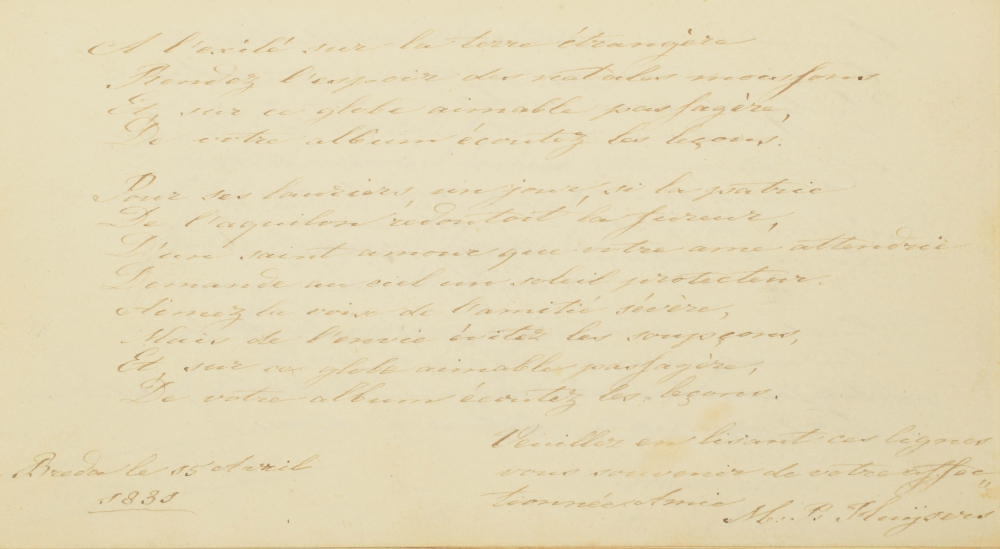 A l'exilé sur la terre étrangère
Rendez l'espoir des natales moissons
Et, sur ce globe aimable passagère,
De votre album écoutez les leçons.
Pour ses lauriers, un jour, si la patrie
De l'aquilon rédoutoit la fureur,
D'un saint amour que votre ame attendrie
Demande au ciel un soleil protecteur.
Aimez la voix de l'amitié sévère,
Mais de l'envie évitez les soupçons,
Et, sur ce globe aimable passagère,
De votre album écoutez les leçons.
Veuillez en lisant ces lignes
vous souvenir de votre affec„
tionnée Amie
M: B Kluijsers
Breda le 15 Avril
1831